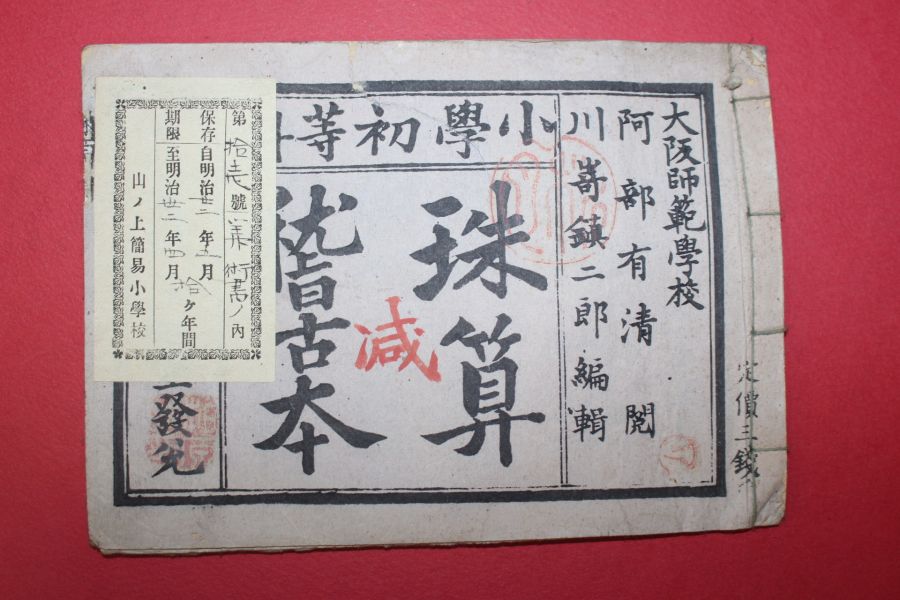 大阪師範學校
阿部有清閲
川嵜鎮二郎編輯
小學初等科
珠算
稽古本
減
發兌
定價三錢
第拾壱號算術書ノ内
保存自明治廿三年五月
期限至明治卅三年四月
拾ヶ年間
山ノ上簡易小學校